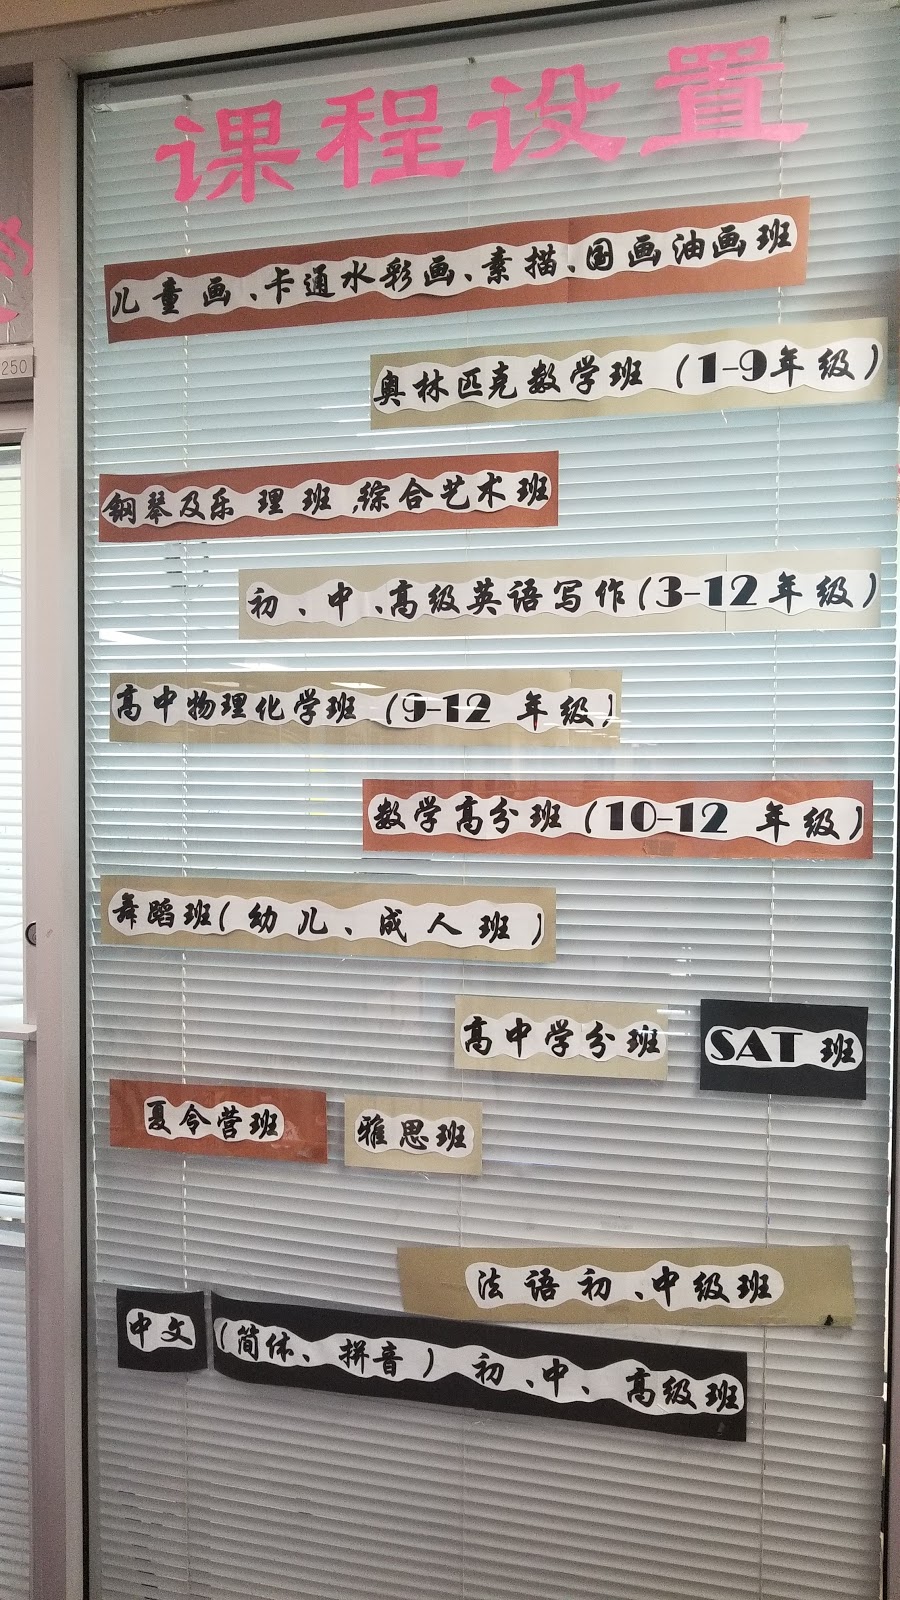 课程设置
儿童画、卡通水彩画、素描、国画油画班
奥林匹克数学班（1-9年级）
钢琴及乐理班、综合艺术班
初、中、高级英语写作（3-12年级）
高中物理化学班（9-12年级）
数学高分班（10-12年级）
舞蹈班（幼儿、成人班）
高中学分班 SAT班
夏令营班 雅思班
法语初、中级班
中文（简体、拼音）初、中、高级班
250